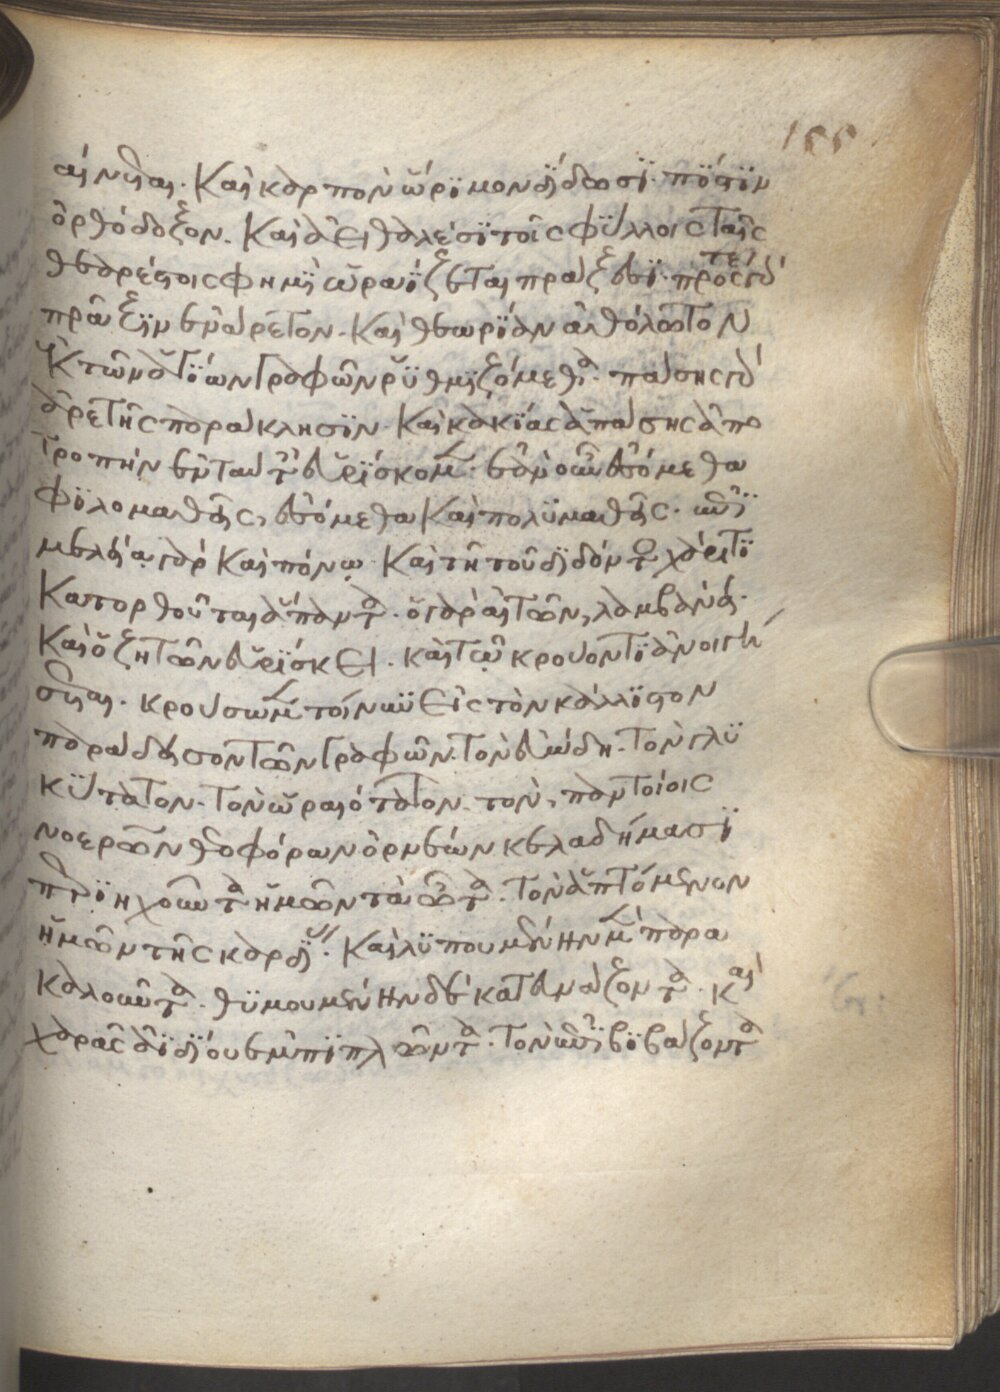 155
αίνεται. Καὶ καρπὸν ὥρϊμον δίδωσϊ. πίστϊν
ὀρθόδοξον. Καὶ ἀειθαλέσϊ τοῖς φύλλοις ταῖς
θεαρέστοις φημὶ ὡραΐζεται πράξεσϊ. πρός τε γὰρ
πρᾶξϊν ἐνάρετον. Καὶ θεωρίαν ἀθόλωτον
ἐκ τῶν ἁγίων Γραφῶν ῥυθμϊζόμεθα. πάσης γὰρ
ἀρετῆς παράκλησϊν. Καὶ κακίας ἁπάσης ἀπο
τροπὴν ἐν ταύταις εὑρίσκομεν. ἐὰν οὖν ἐσόμεθα
φϊλομαθεῖς, ἐσόμεθα Καὶ πολϋμαθεῖς. ἐπϊ
μελεία γὰρ Καὶ πόνῳ. Καὶ τῆ τοῦ διδόντος χάριτϊ
Κατορθοῦται ἅπαντα. ὁ γὰρ αἰτῶν, λαμβάνει.
Καὶ ὁ ζητῶν εὑρίσκει. καὶ τῶ κρούοντϊ ἀνοιγή
σεται. κρούσωμεν τοίνϋν εἰς τὸν κάλλϊστον
παράδεισον τῶν Γραφῶν. τὸν εὐώδη. τὸν γλϋ
κύτατον. τὸν ὡραιότατον. τὸν, παντοίοις
νοερῶν θεοφόρων ὀρνέων κελαδήμασϊ
περϊηχοῦντα ἡμῶν τὰ ὦτα. τὸν ἁπτόμενον
ἡμῶν τῆς καρδίας. Καὶ λϋπουμένην μὲν παρα
καλοῦντα. θϋμουμένην δὲ κατευνάζοντα. καὶ
χαρᾶς ἀϊδίου ἐμπϊπλῶντα. τὸν ἐπϊβϊβάζοντα